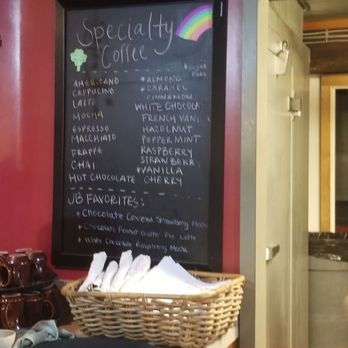 Specialty
Coffee
* SUGAR
FREE
AMERICANO
CAPPUCINO
LATTE
MOCHA
ESPRESSO
MACCHIATO
FRAPPÉ
CHAI
HOT CHOCOLATE
* ALMOND
* CARAMEL
CINNAMON
WHITE CHOCOLA
FRENCH VANI
HAZELNUT
PEPPERMINT
RASPBERRY
STRAWBERR
* VANILLA
CHERRY
JB FAVORITES:
* Chocolate Covered Strawberry Mocha
* Chocolate Peanut Butter Pie Latte
* White Chocolate Raspberry Mocha